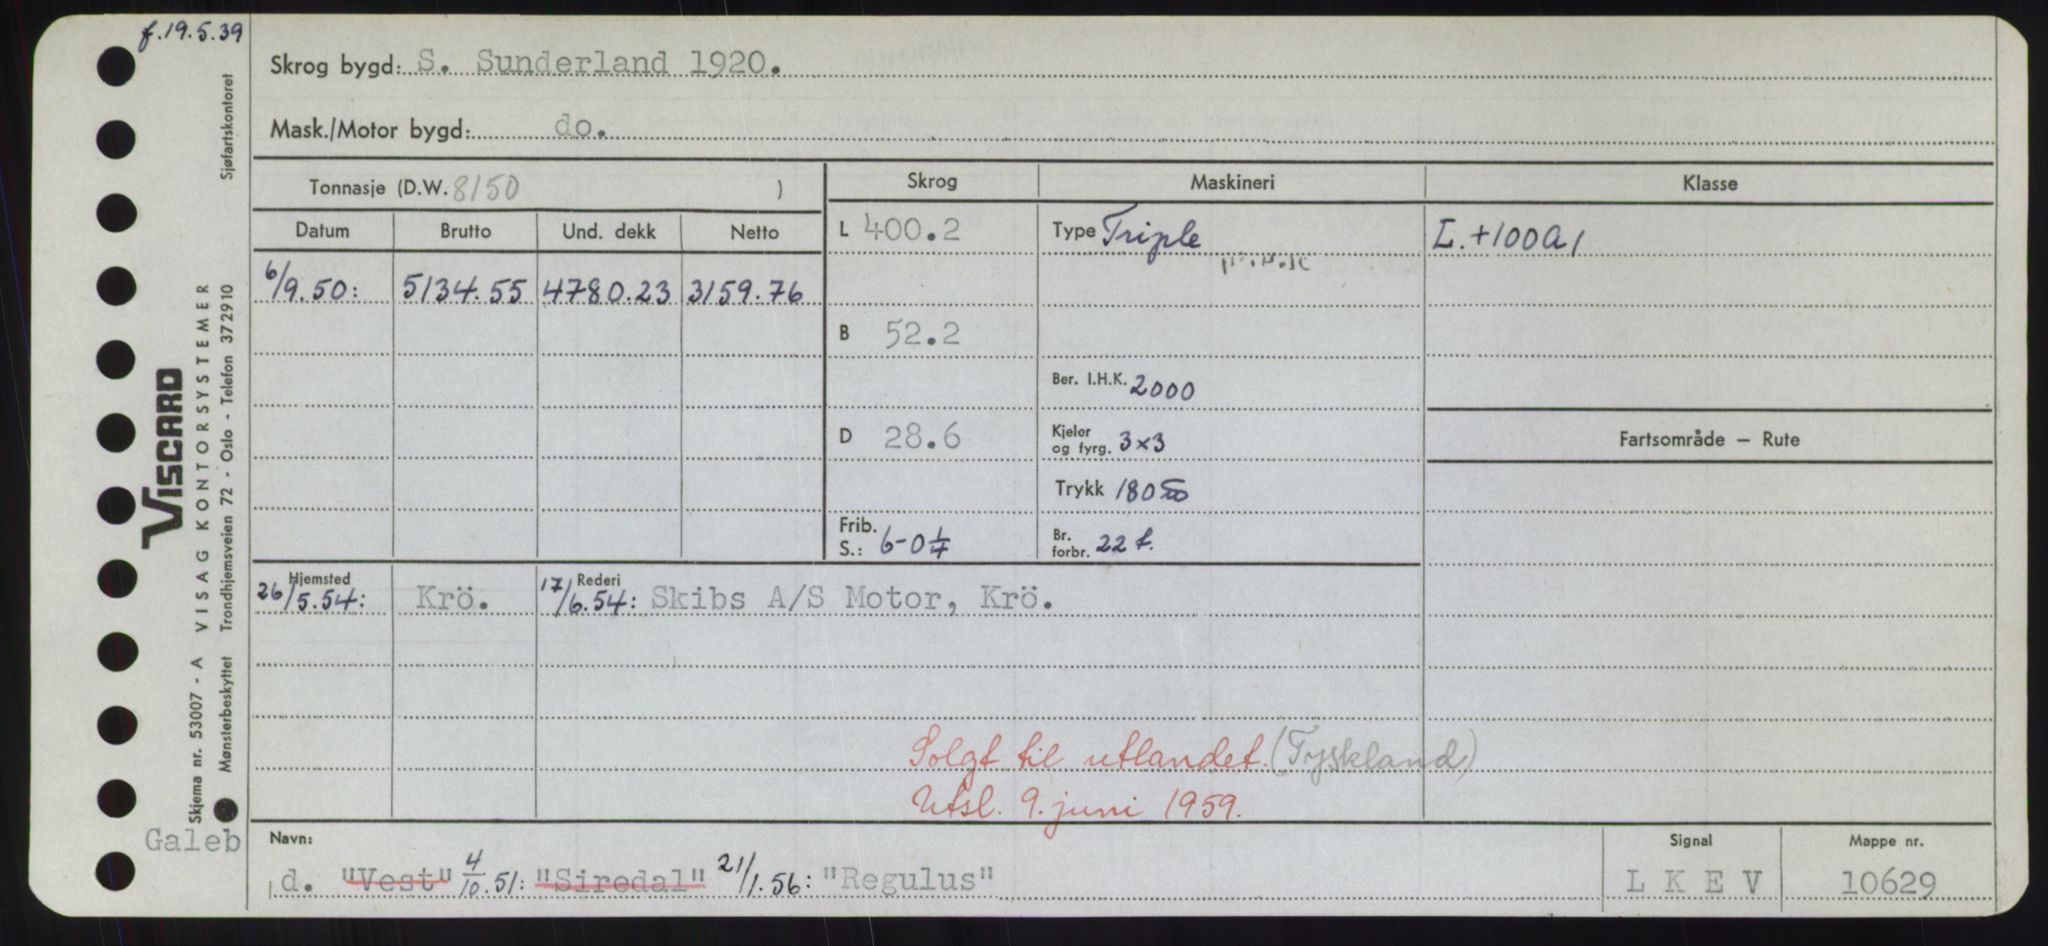 f.19.5.39
Skrog bygd: S. Sunderland 1920.
Mask./Motor bygd: do.
Tonnasje (D.W. 8150 )
Skrog Maskineri Klasse
Datum Brutto Und. dekk Netto
L 400.2 Type Triple I.+100A1
6/9.50: 5134.55 4780.23 3159.76
B 52.2
Ber. I.H.K. 2000
D 28.6 Kjeler og fyrg. 3x3
Fartsområde – Rute
Trykk 180
Frib. S.: 6-0 Br. forbr. 22 t.
Hjemsted Rederi
26/5.54: Krö. 17/6.54: Skibs A/S Motor, Krö.
Solgt til utlandet. (Tyskland)
Utsl. 9. juni 1959.
Navn: Signal Mappe nr.
Galeb
d. "Vest" 4/10.51: "Siredal" 21/1.56: "Regulus" L K E V 10629
Sjøfartskontoret
VISCARD
VISAG KONTORSYSTEMER
Trondhjemsveien 72 - Oslo - Telefon 372910
Skjema nr. 53007 - A
Mønsterbeskyttet